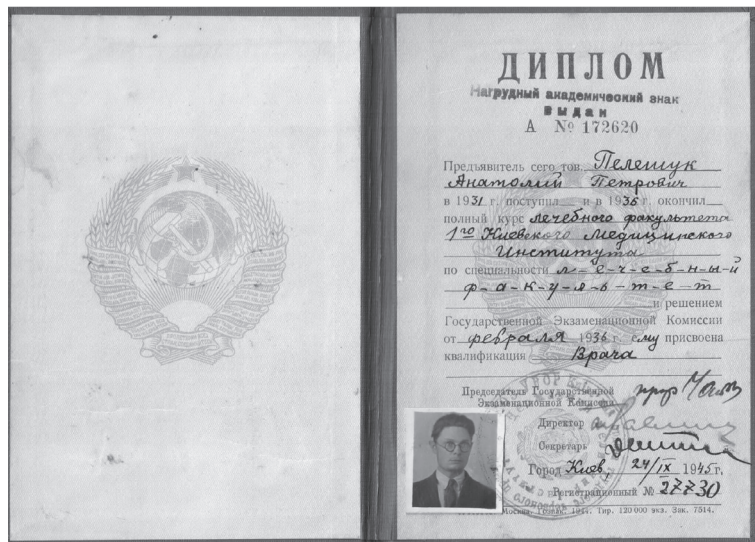 ДИПЛОМ
Нагрудный академический знак
выдан
А № 172620
Предъявитель сего тов. Пелещук
Анатолий Петрович
в 1931 г. поступил и в 1936 г. окончил
полный курс лечебного факультета
1го Киевского Медицинского
Института
по специальности л-е-ч-е-б-н-ы-й
ф-а-к-у-л-ь-т-е-т
и решением
Государственной Экзаменационной Комиссии
от февраля 1936 г. ему присвоена
квалификация Врача
Председатель Государственной
Экзаменационной Комиссии проф
Директор
Секретарь
Город Киев 24/IX 1945 г.
Регистрационный № 27730
Москва. Гознак. 1944. Тир. 120 000 экз. Зак. 7514.